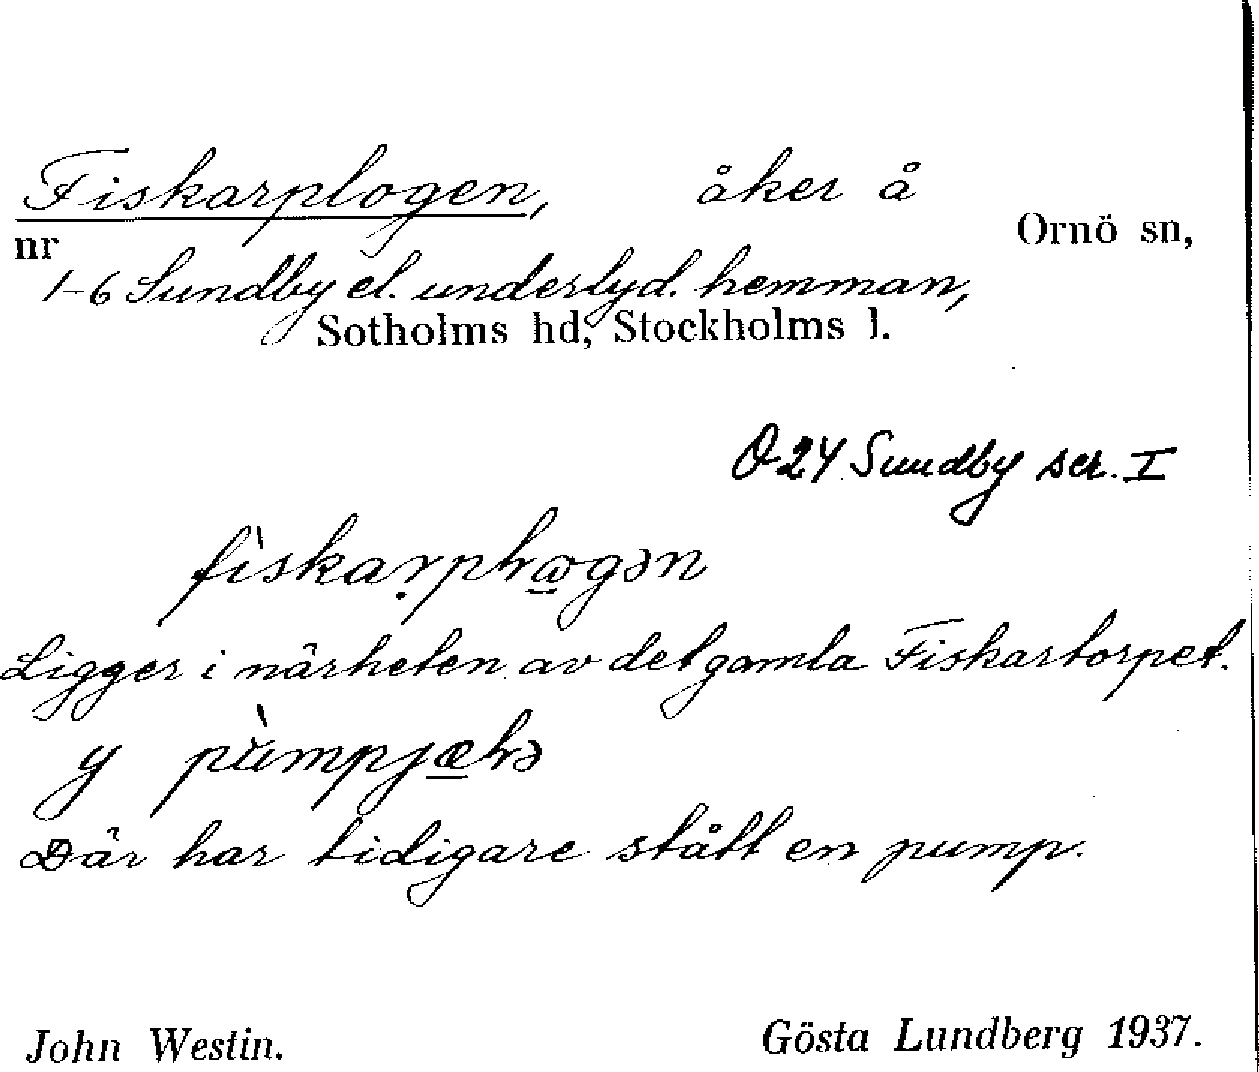 Fiskarplogen, åker å
nr Ornö sn,
1-6 Sundby el. underlyd. hemman,
Sotholms hd, Stockholms l.
Ö 24 Sundby ser. I
Ligger i närheten av det gamla Fiskartorpet.
y
Där har tidigare stått en pump.
John Westin. Gösta Lundberg 1937.